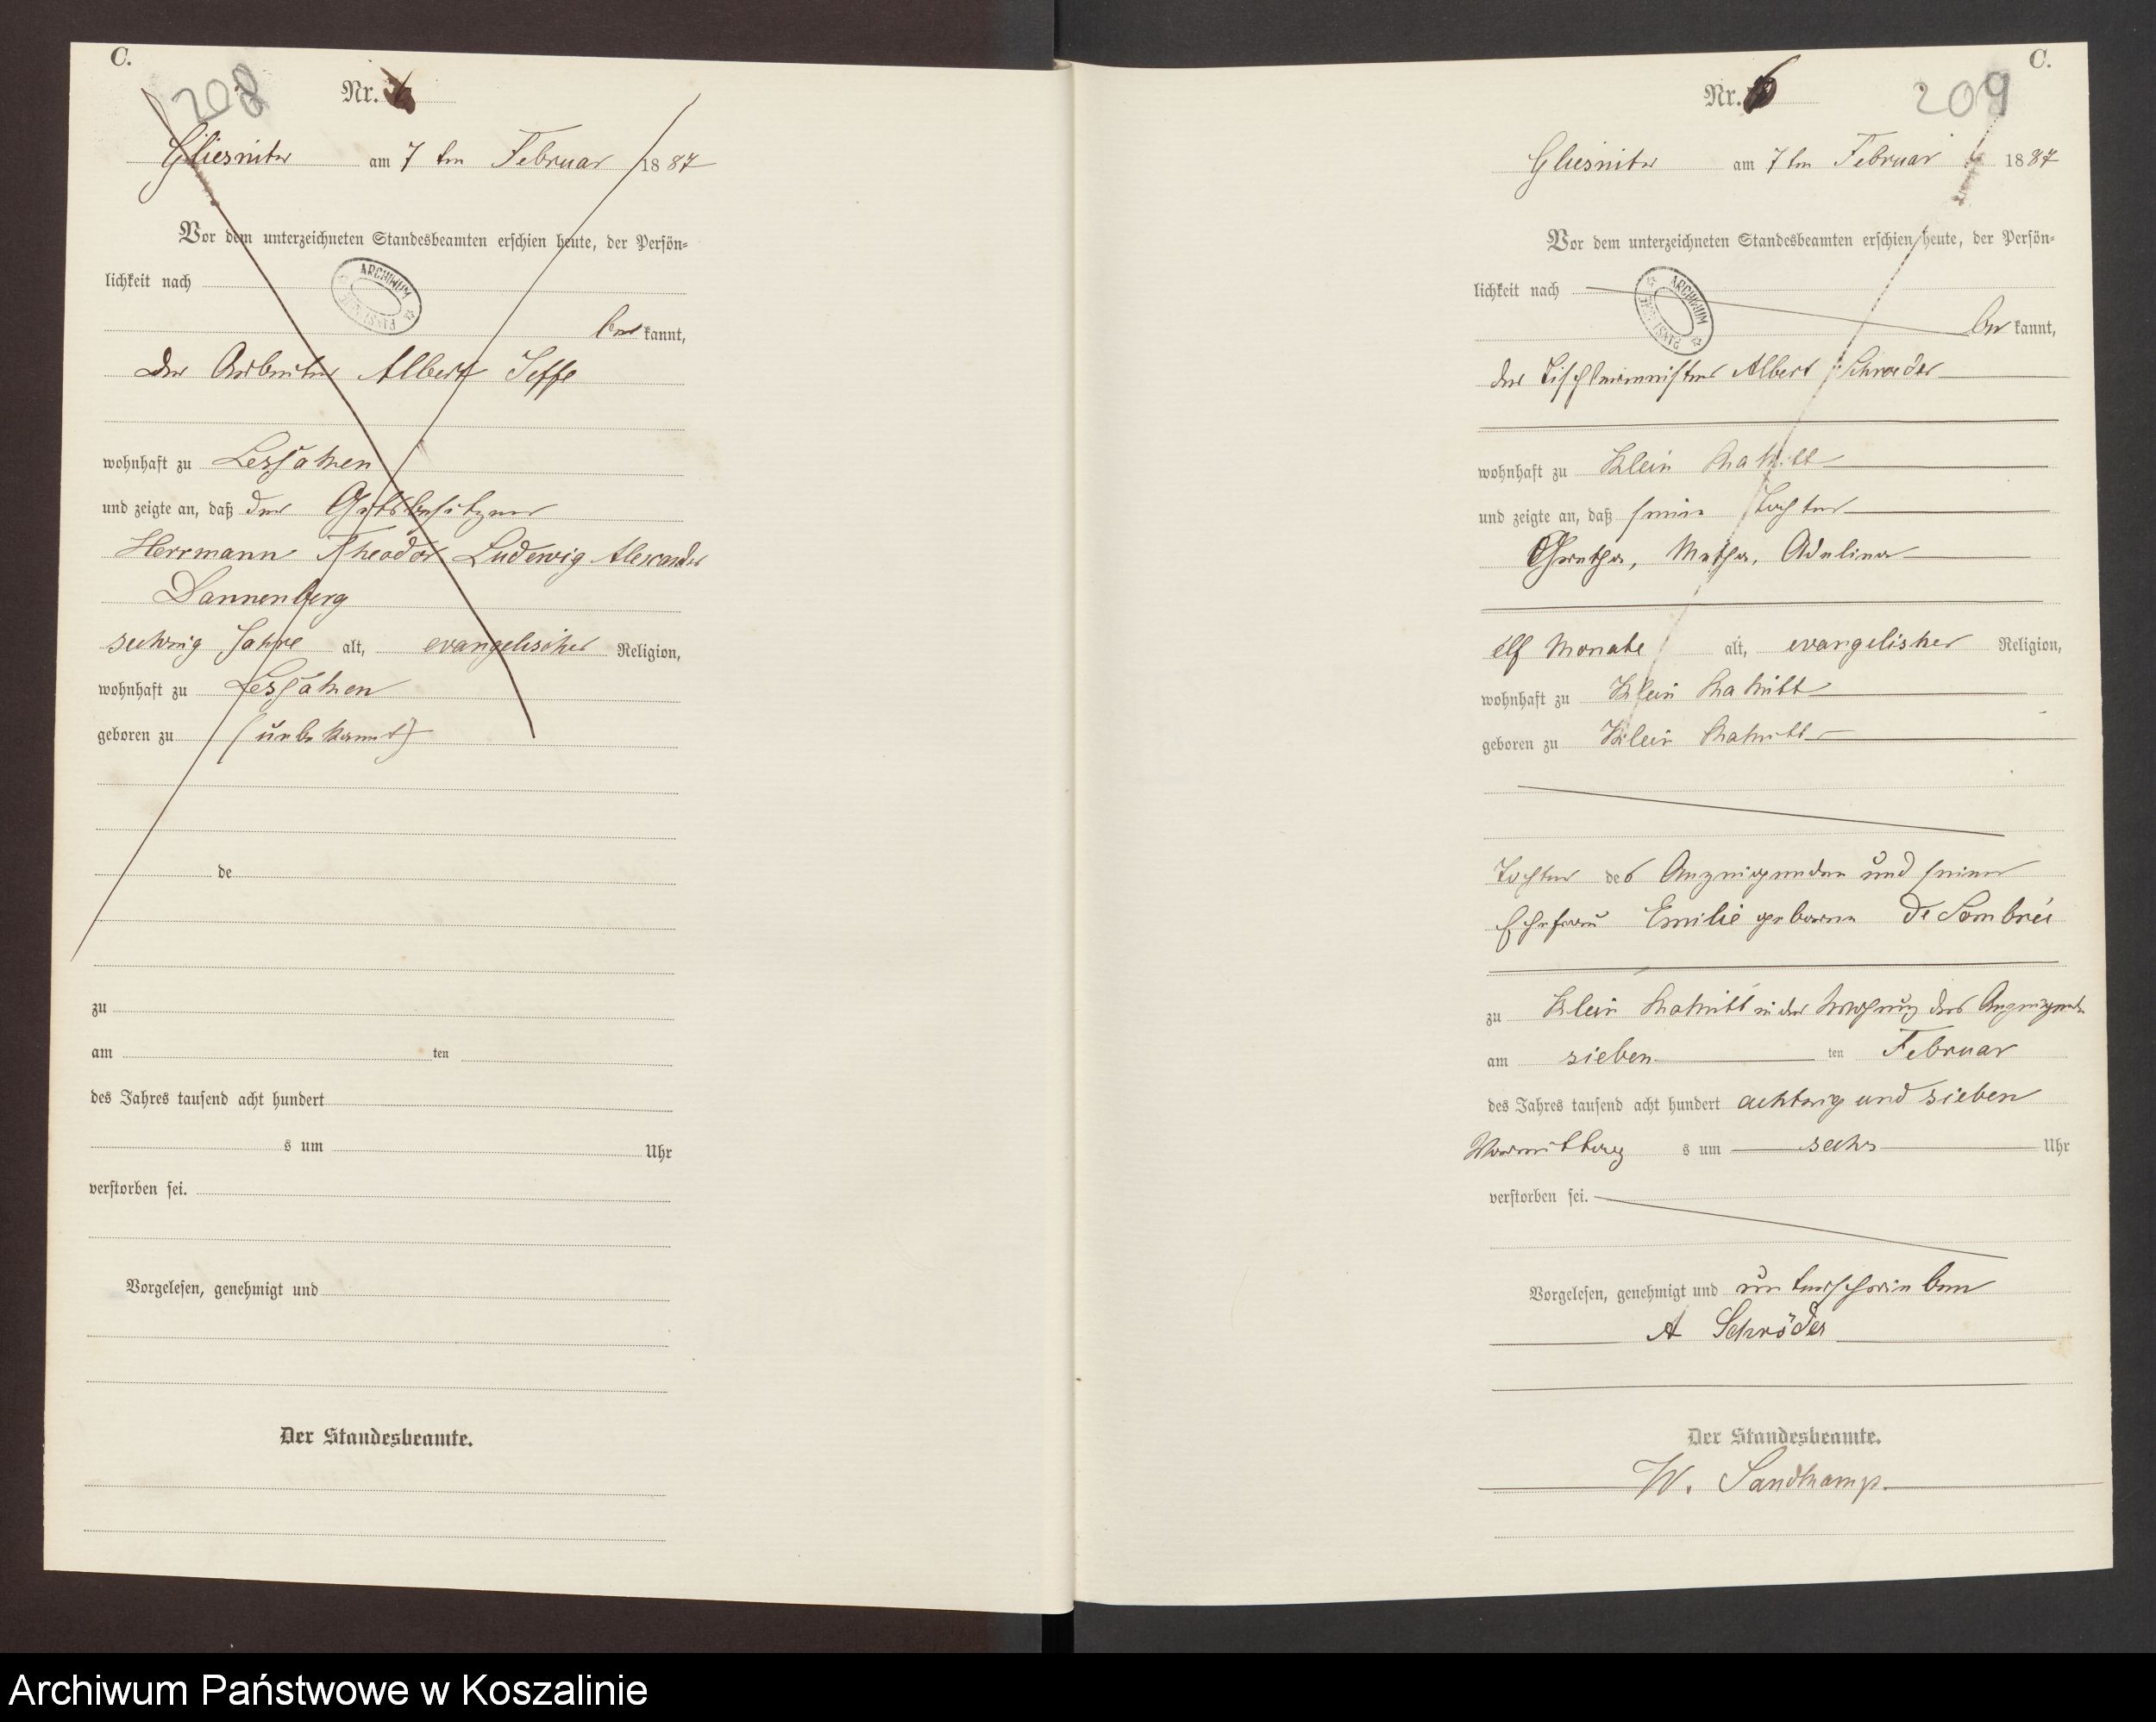 C.
208
Nr.
Gliesnitz am 7 ten Februar 1887
Vor dem unterzeichneten Standesbeamten erschien heute, der Persön-
lichkeit nach
ARCHIWUM
be kannt,
der Arbeiter Albert
wohnhaft zu
und zeigte an, daß der Gutsbesitzer
Herrmann Theodor Ludewig Alexander
Dannenberg
sechzig Jahre alt, evangelischer Religion,
wohnhaft zu
geboren zu (unbekannt)
de
zu
am ten
des Jahres tausend acht hundert
s um Uhr
verstorben sei.
Vorgelesen, genehmigt und
Der Standesbeamte.
C.
Nr. 6 209
Gliesnitz am 7 ten Februar 1887
Vor dem unterzeichneten Standesbeamten erschien heute, der Persön-
lichkeit nach
ARCHIWUM
be kannt,
der Tischlermeister Albert Schroeder
wohnhaft zu Klein
und zeigte an, daß seine Tochter
Martha, Adeline
elf Monate alt, evangelischer Religion,
wohnhaft zu Klein
geboren zu Klein
Tochter des Anzeigenden und seiner
Ehefrau Emilie geborene
zu Klein in der Wohnung des Anzeigenden
am sieben ten Februar
des Jahres tausend acht hundert achtzig und sieben
Vormittag s um sechs Uhr
verstorben sei.
Vorgelesen, genehmigt und unterschrieben
A Schröder
Der Standesbeamte.
W. Sandkamp
Archiwum Państwowe w Koszalinie